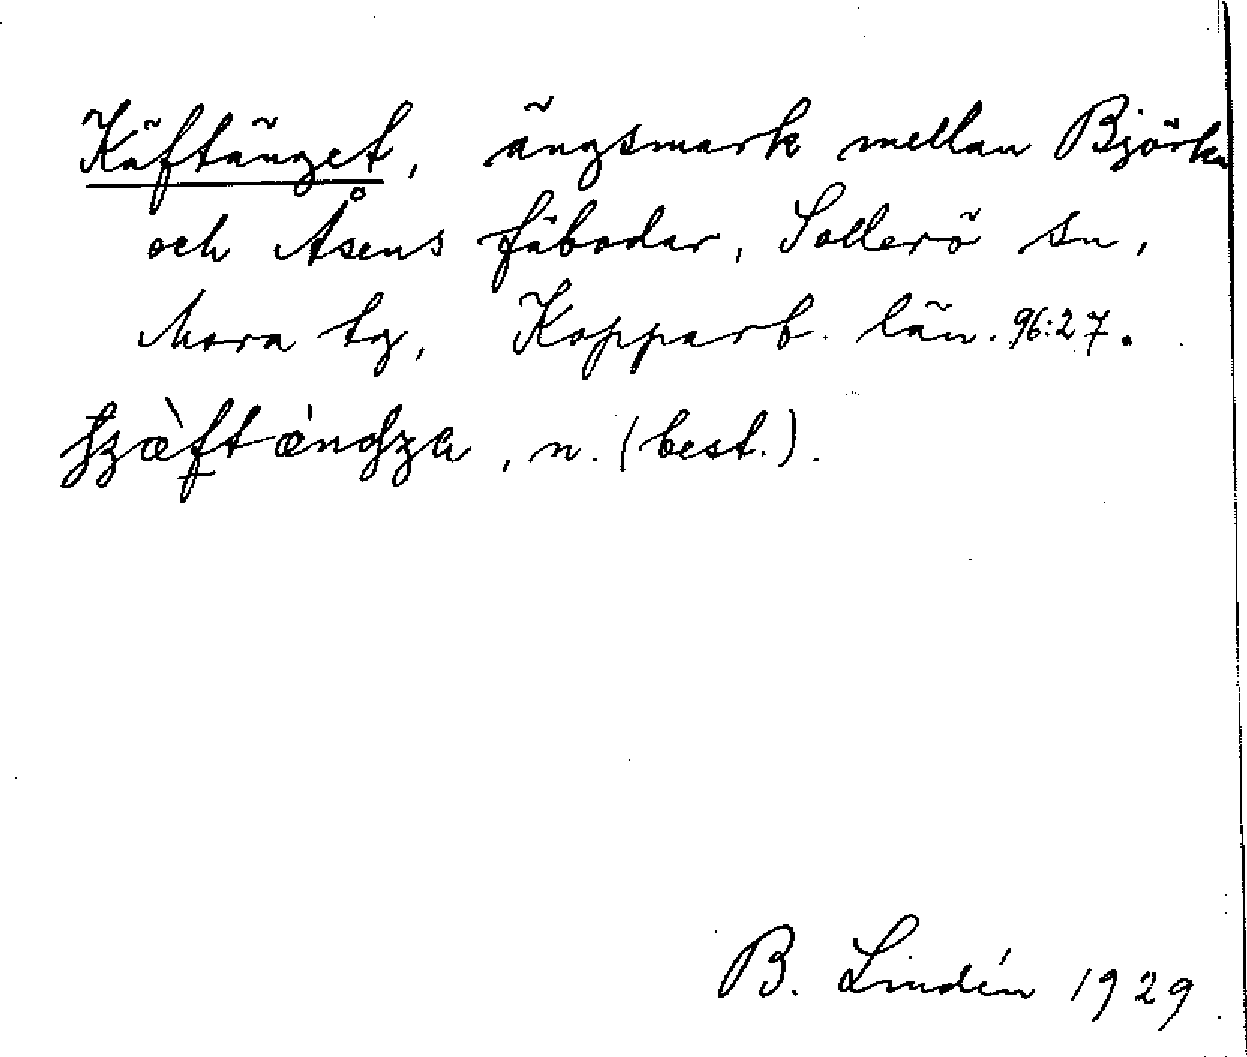 Käftänget, ängsmark mellan Björka
och Åsens fäbodar, Sollerö sn,
Mora tg, Kopparb. län. 96:27.
, n. (best.).
B. Lindén 1929